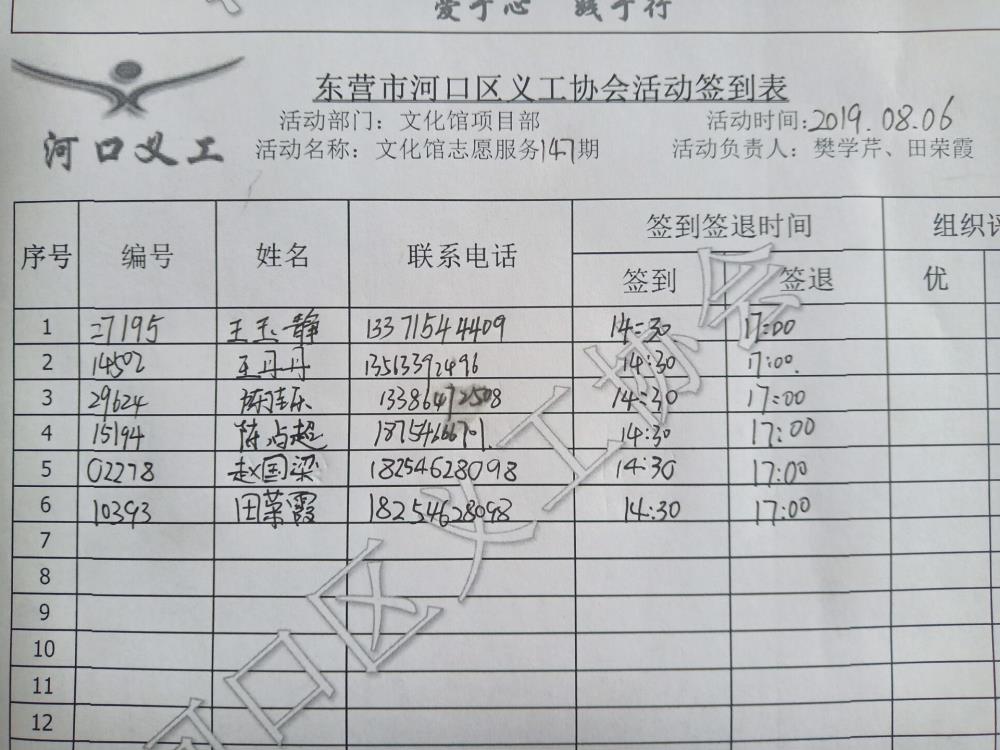 爱于心 践于行
东营市河口区义工协会活动签到表
河口义工
活动部门：文化馆项目部 活动时间:2019.08.06
活动名称：文化馆志愿服务147期 活动负责人：樊学芹、田荣霞
序号 编号 姓名 联系电话 签到签退时间 组织评
签到 签退 优
1 27195 王玉静 13371544409 14:30 17:00
2 14502 王丹丹 13513392496 14:30 17:00.
3 29624 陈佳乐 13386472508 14:30 17:00
4 15194 陈占超 1875466670 14:30 17:00
5 02278 赵国梁 18254628098 14:30 17:00
6 10393 田荣霞 18254628098 14:30 17:00
7
8
9
10
11
12
河口区义工协会